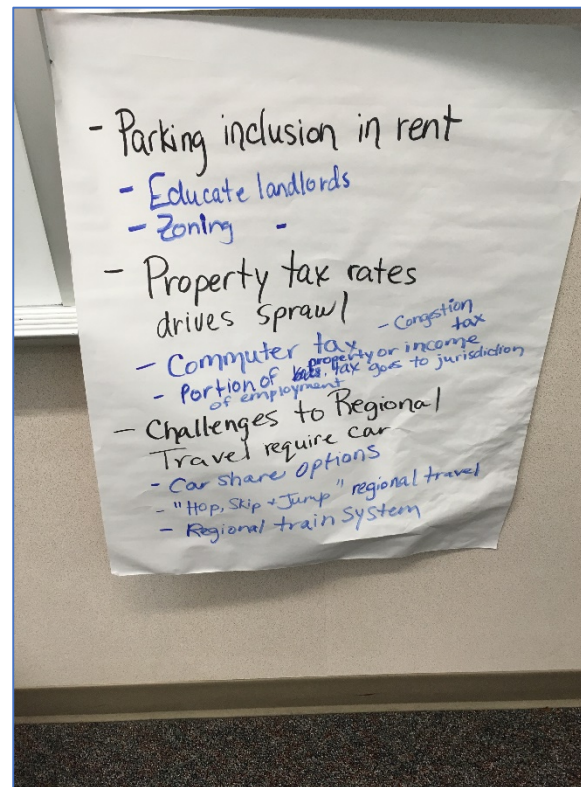 - Parking inclusion in rent
- Educate landlords
- Zoning -
- Property tax rates
drives sprawl
- Commuter tax
- Congestion
tax
- Portion of property or income
tax goes to jurisdiction
of employment
- Challenges to Regional
Travel require car
- Car share options
- "Hop, Skip + Jump" regional travel
- Regional train system